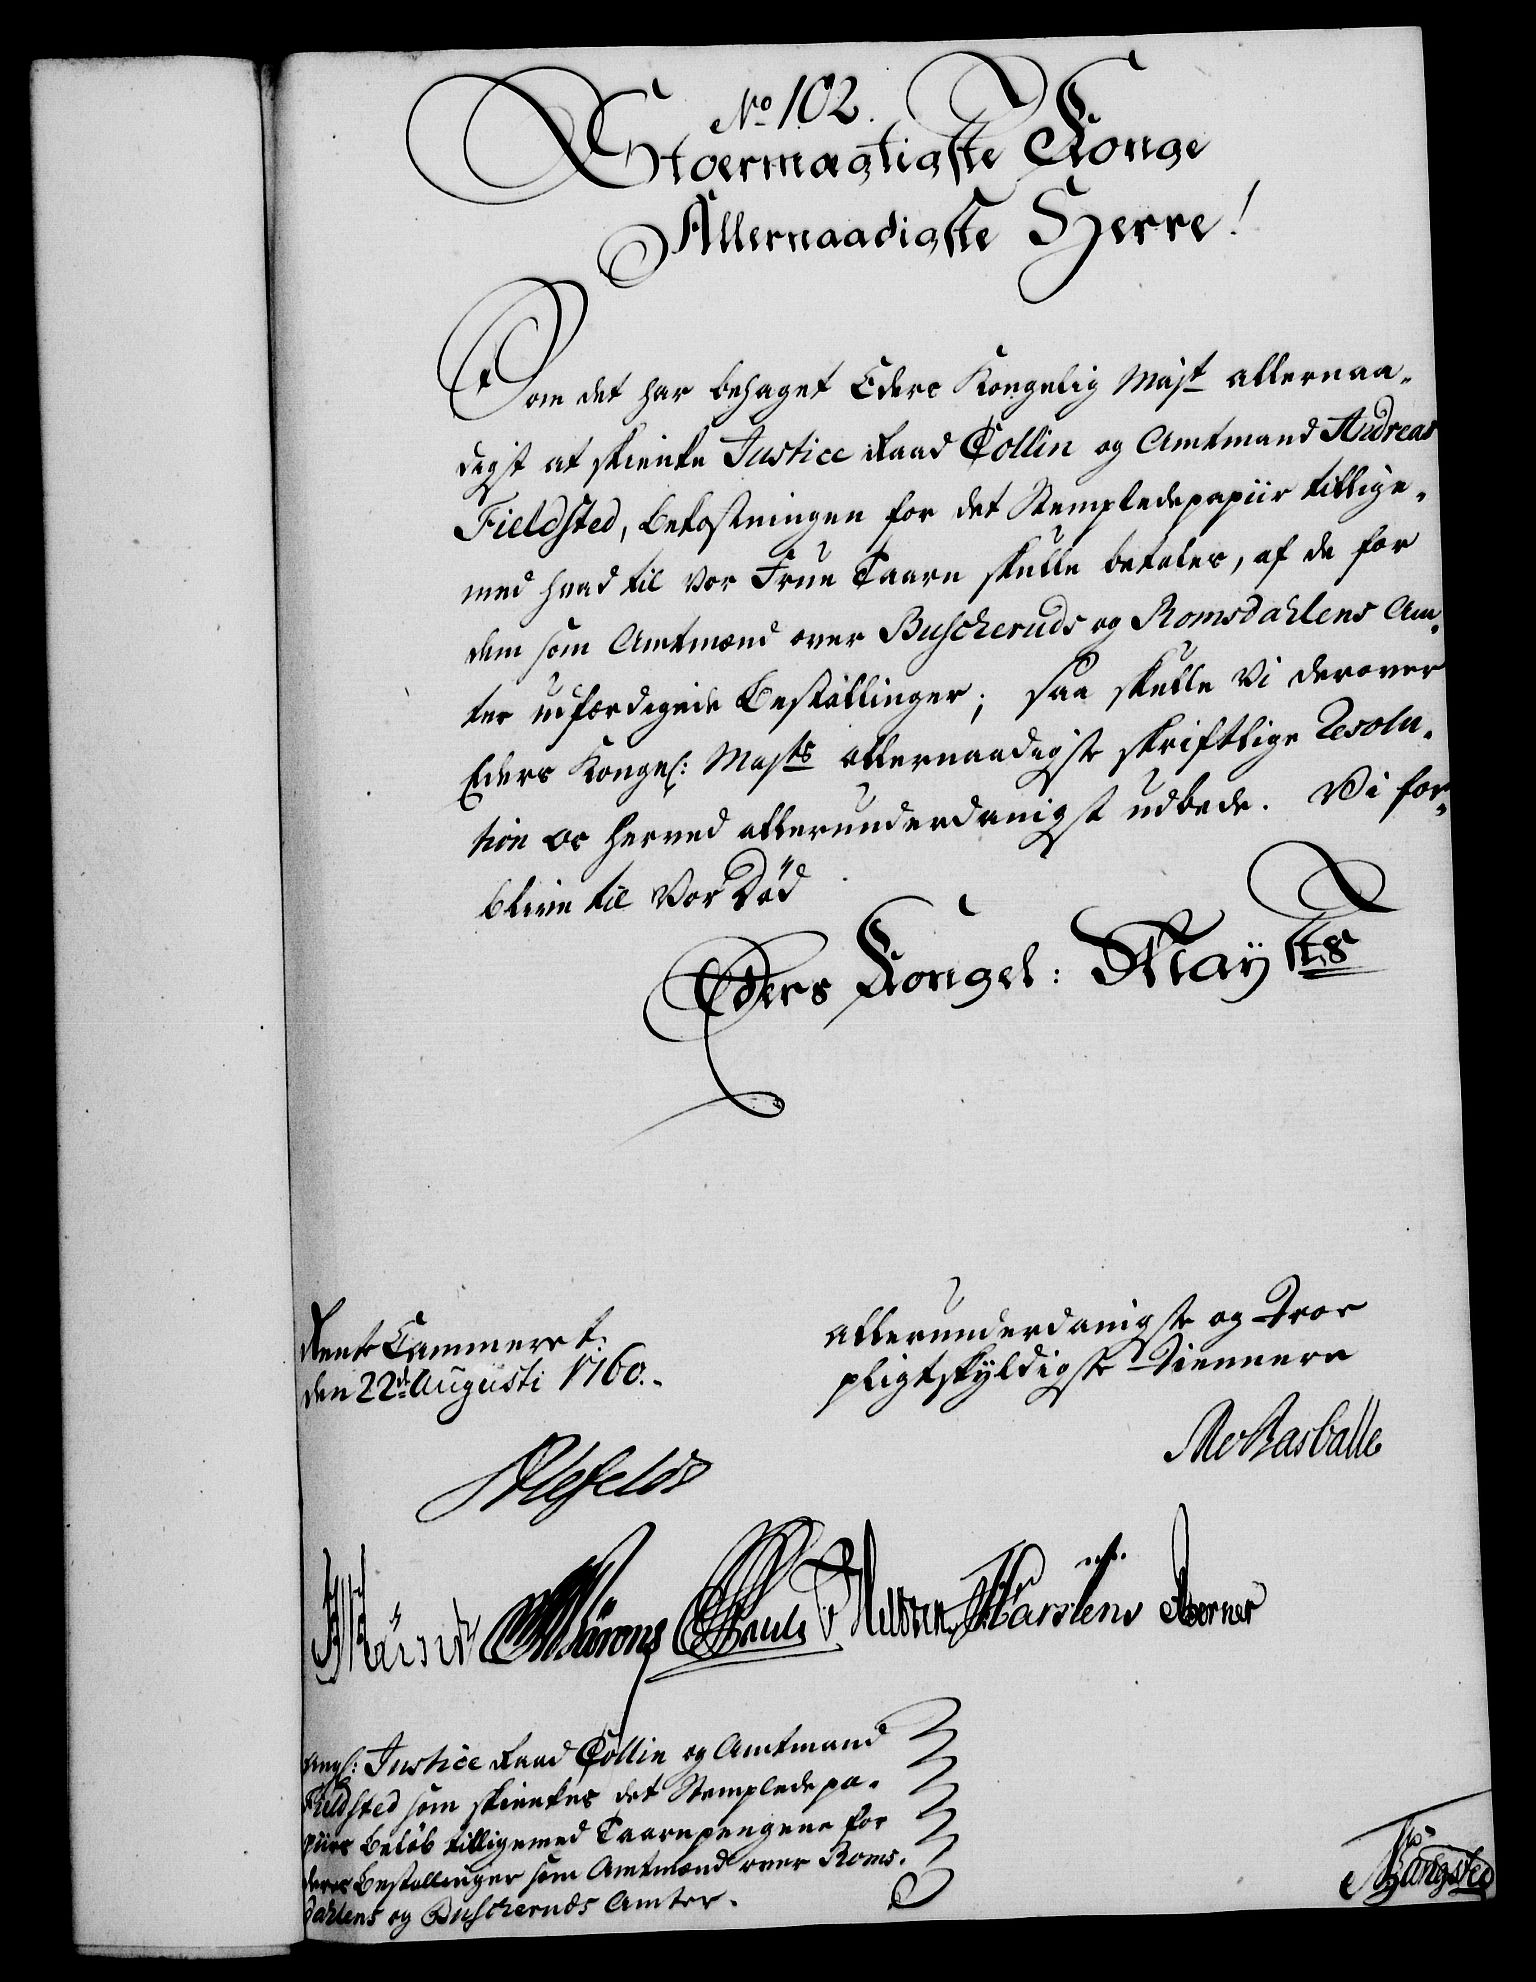 No 102.
Stoermægtigste Konge
Allernaadigste Herre!
Som det har behaget Eders Kongelig Majt allernaa-
digst at skienke Justice Raad Collin og Amtmand Andreas
Fieldsted, bekostningen for det Stempledepapiir tillige-
med hvad til Vor Frue Taarn skulle betales, af de for
dem som Amtmænd over Buscheruds og Romsdahlens Am-
ter udfærdigede Bestallinger; saa skulle Vi derover
Eders Kongel: Majts allernaadigste skriftlige Resolu-
tion os herved allerunderdanigst udbede. Vi for-
blive til Vor Död
Eders Kongel: Mayts
Rente Cammeret.
den 22de Augusti 1760.
allerunderdanigste og Troe
pligtskyldigste Tiennere
Alefeldt
Rasballe
Pauls Karstens Berner
Angl: Justice Raad Collin og Amtmand
Fieldsted som skienkes det Stempledepa-
piirs Beløb tilligemed Taarnpengene for
deres Bestallinger som Amtmænd over Roms-
dahlens og Buscheruds Amter.